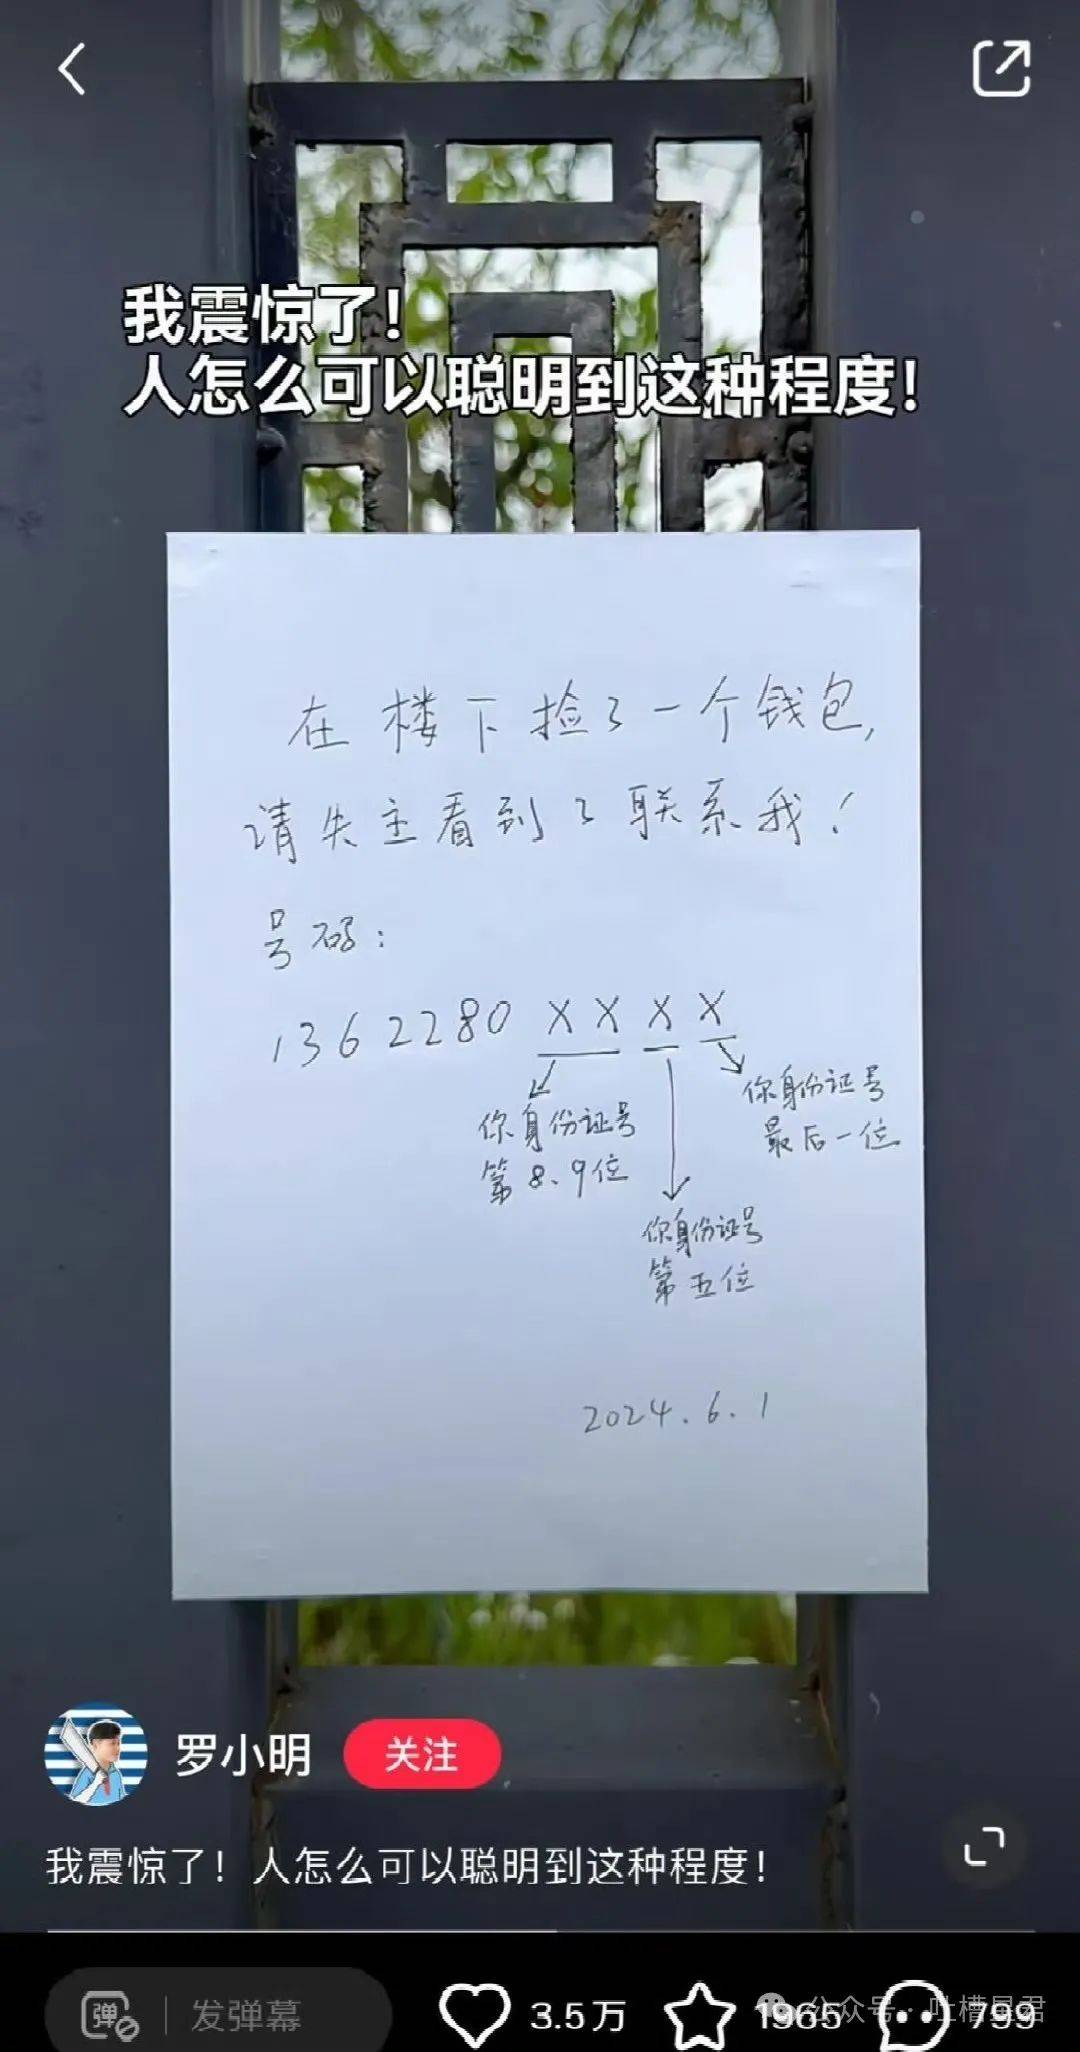 我震惊了！
人怎么可以聪明到这种程度！
在楼下捡了一个钱包,
请失主看到了联系我！
号码：
1362280 X X X X
你身份证号
第8、9位
你身份证号
第五位
你身份证号
最后一位
2024.6.1
罗小明
关注
我震惊了！人怎么可以聪明到这种程度！
弹
发弹幕
3.5万
1965
799
公众号 · 吐槽星君